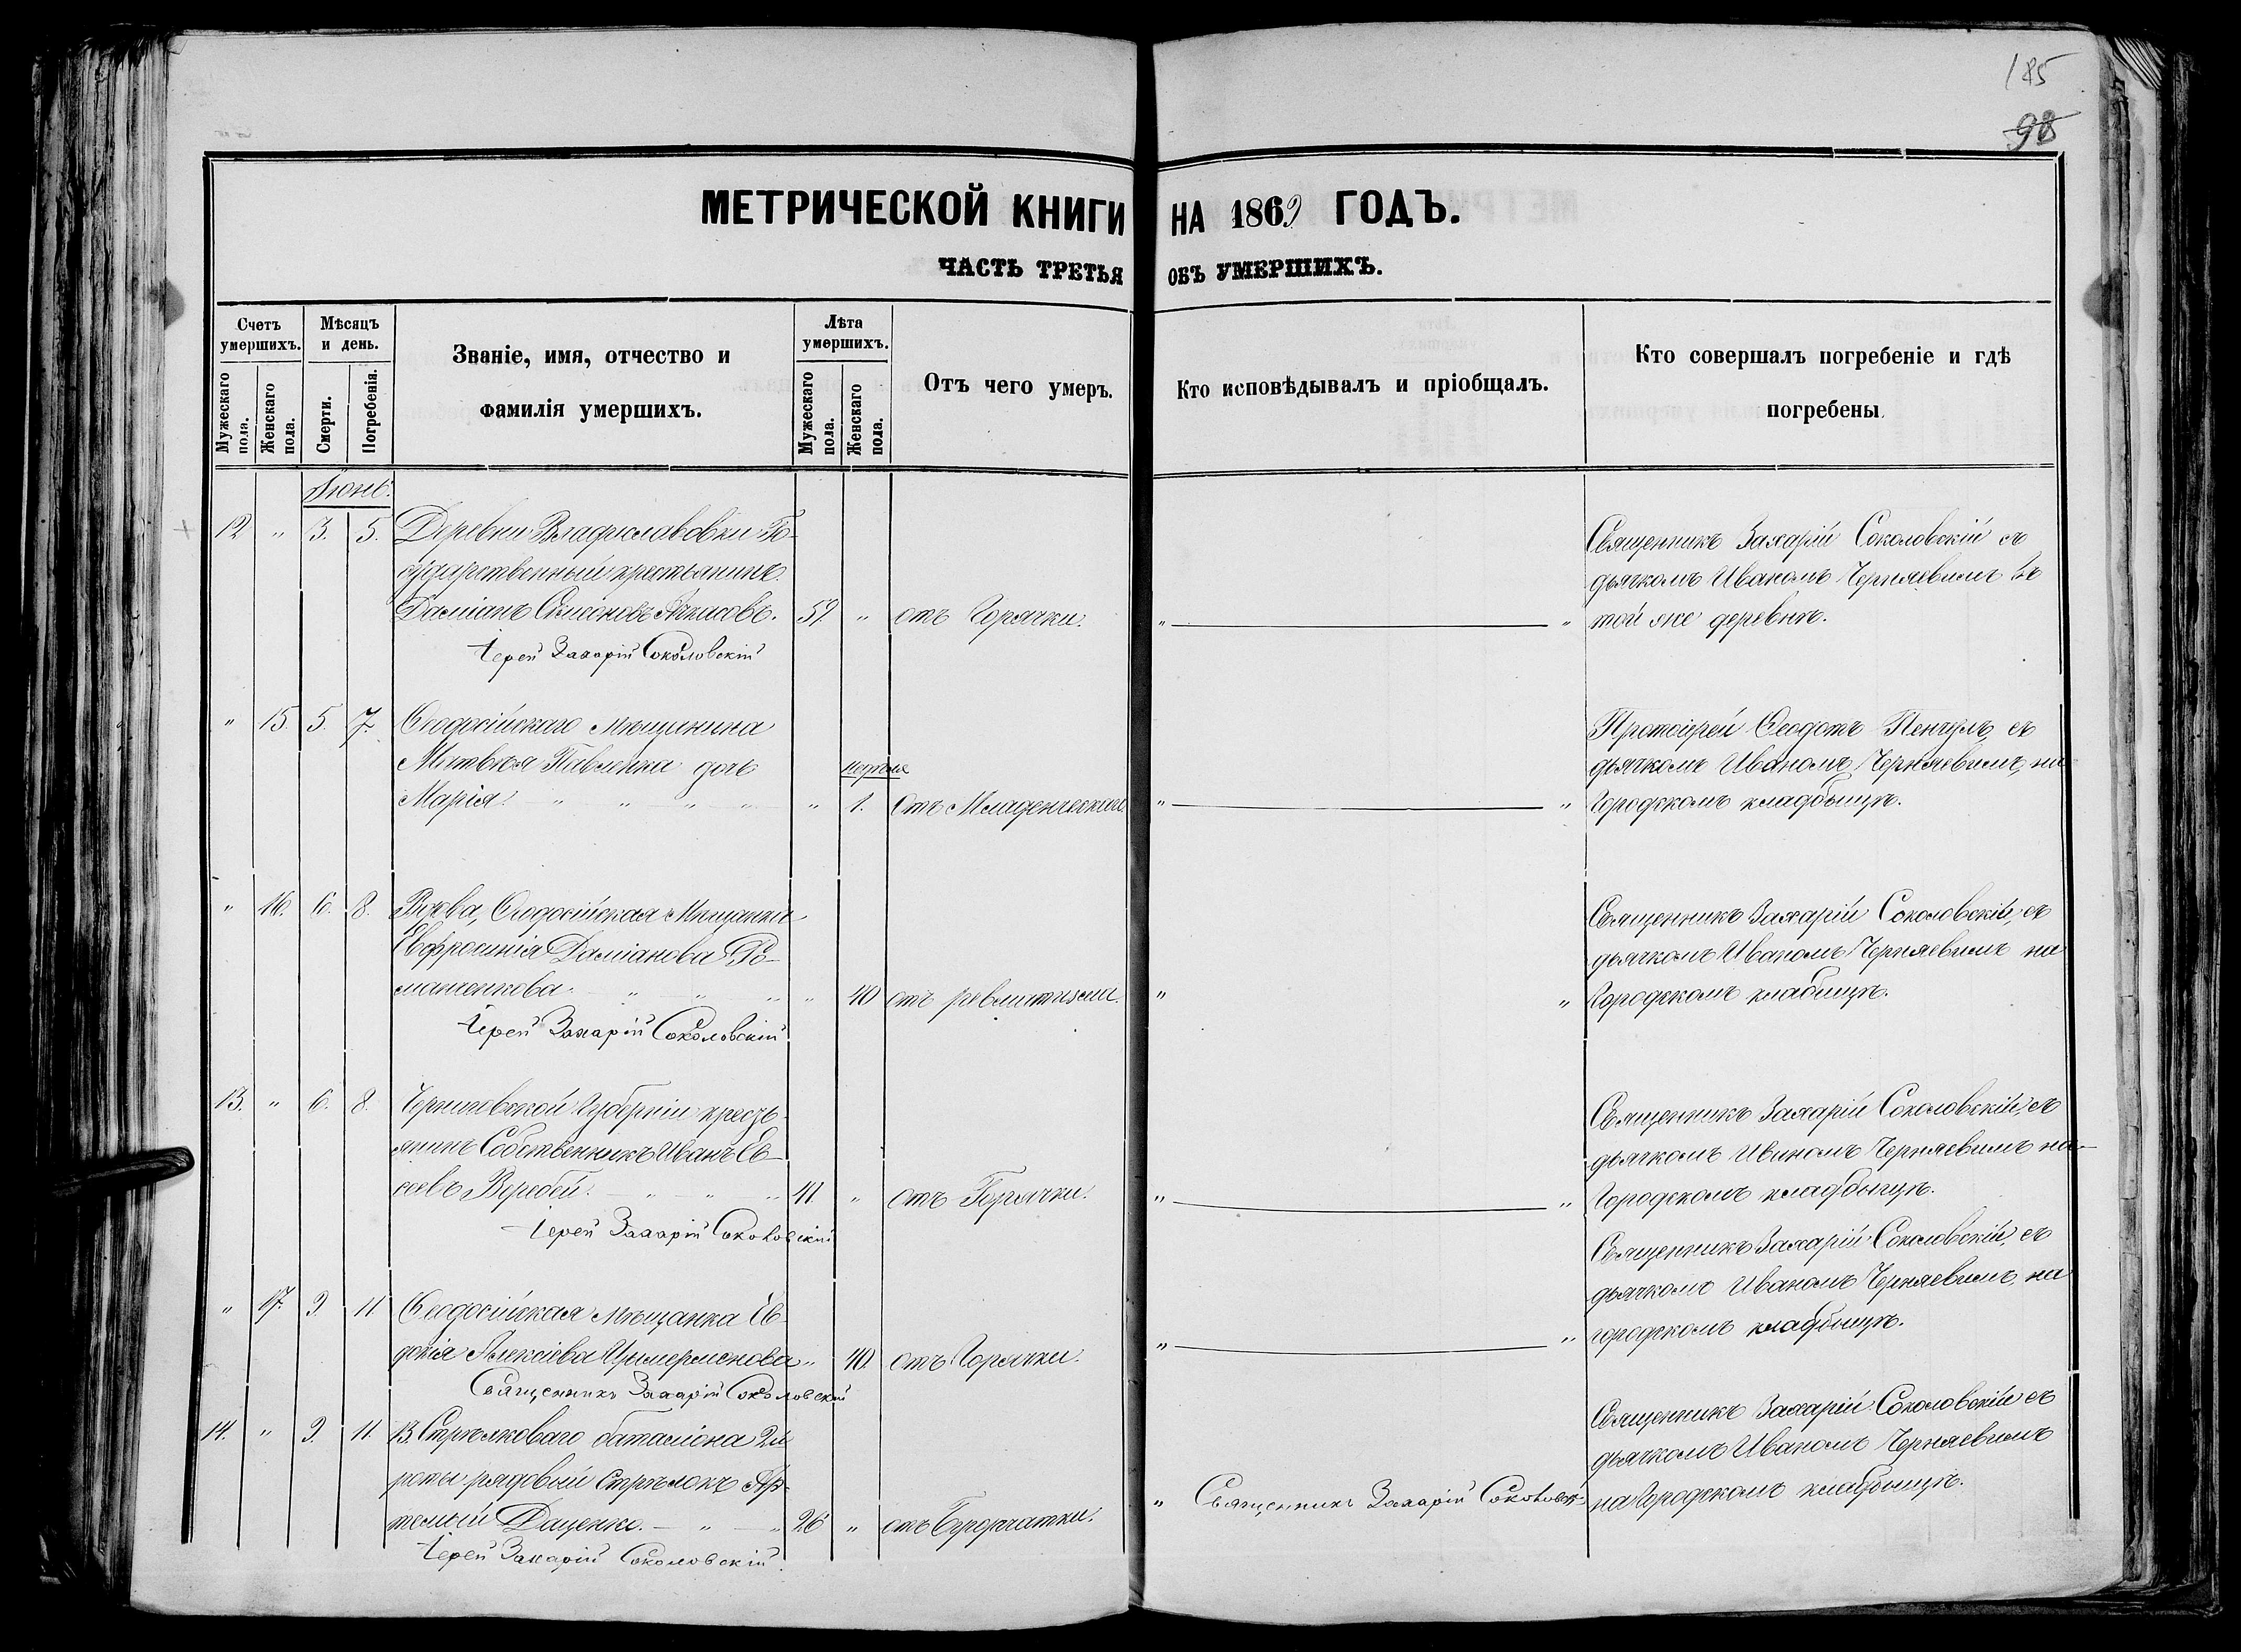 185
98
МЕТРИЧЕСКОЙ КНИГИ НА 1869 ГОДЪ.
ЧАСТЬ ТРЕТЬЯ ОБЪ УМЕРШИХЪ.
Счетъ умершихъ.
Мужескаго пола.
Женскаго пола.
Мѣсяцъ и день.
Смерти.
Погребенія.
Званіе, имя, отчество и
фамилія умершихъ.
Лѣта умершихъ.
Мужескаго пола.
Женскаго пола.
Отъ чего умеръ.
Кто исповѣдывалъ и пріобщалъ.
Кто совершалъ погребеніе и гдѣ
погребены.
Іюнь.
12 " 3. 5. Деревни Владиславовки Го-
сударственный крестьянинъ
Даміанъ Симоновъ. 57. " отъ Горячки. " "
Іерей Захарій Соколовскій
Священникъ Захарій Соколовскій съ
дьячкомъ Иваномъ Черняевимъ въ
той же деревнѣ.
" 15. 5. 7. Ѳеодосійскаго мѣщанина
Матвѣя Павленка дочь
Марія. " " " " " 1. отъ Младенческой " "
Протоіерей Ѳеодотъ съ
дьячкомъ Иваномъ Черняевимъ, на
Городскомъ кладбыщѣ.
" 16. 6. 8. Вдова, Ѳеодосійская Мѣщанка
Евфросинія Даміанова Ро-
маненкова. " " " " 40 отъ ревматизма. " "
Іерей Захарій Соколовскій
Священникъ Захарій Соколовскій, съ
дьячкомъ Иваномъ Черняевимъ на
Городскомъ клабищѣ.
13. " 6. 8. Черниговской Губерніи кресть-
янинъ Собственникъ Иванъ Ев-
сѣевъ Воробей. " " " 41 " отъ Горячки. " "
Іерей Захарій Соколовскій
Священникъ Захарій Соколовскій, съ
дьячкомъ Иваномъ Черняевимъ на
Городскомъ кладбыщѣ.
" 17. 9. 11 Ѳеодосійская мѣщанка Ев-
докія Алексіева " 40. отъ Горячки. " "
Священникъ Захарій Соколовскій
Священникъ Захарій Соколовскій, съ
дьячкомъ Иваномъ Черняевимъ, на
городскомъ кладбыщѣ.
14. " 9. 11. 13 Стрѣлковаго баталіона 2й
роты рядовый Стрѣлокъ Ар-
темый Даценко. " " 26 " отъ Бугорчатки. " Священникъ Захарій Соколовскій
Іерей Захарій Соколовскій
Священникъ Захарій Соколовскій съ
дьячкомъ Иваномъ Черняевимъ
на Городскомъ кладбыщѣ.